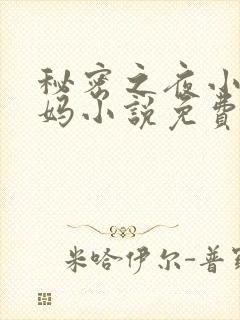 秘密之夜小
妈小说免费
米哈伊尔-普